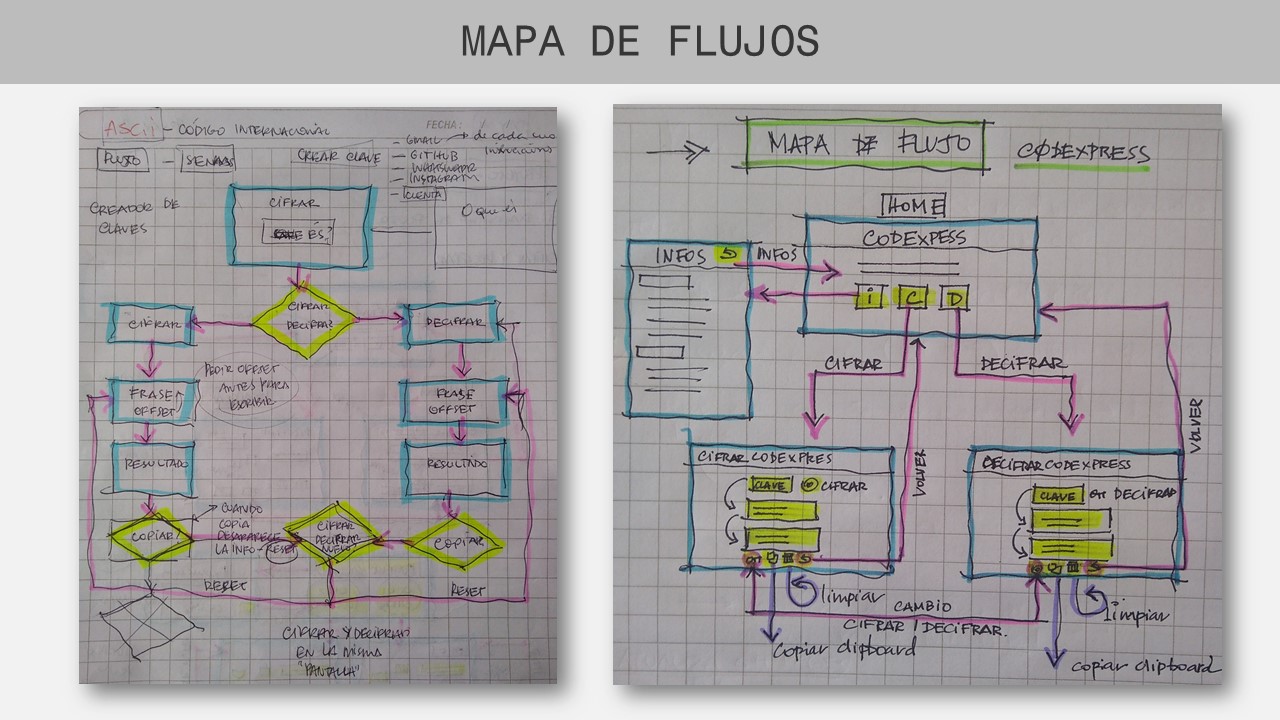 MAPA DE FLUJOS
ASCII - CÓDIGO INTERNACIONAL
FECHA:
FLUJO -
CREAR CLAVE
- GMAIL → de cada uno
- GITHUB
- WHATSAPP
- INSTAGRAM
- CUENTA
CREADOR DE
CLAVES
CIFRAR
ES?
O que es
CIFRAR
DECIFRAR
CIFRAR
DECIFRAR
PEDIR OFFSET
ANTES PARA
ESCRIBIR
FRASE
OFFSET
FRASE
OFFSET
RESULTADO
RESULTADO
CUANDO
COPIA
DESAPARESE
LA INFO - RESET
COPIAR?
CIFRAR
DECIFRAR
NUEVO?
COPIAR
RESET
RESET
CIFRAR Y DECIFRAR
EN LA MISMA
"PANTALLA"
MAPA DE FLUJO
CODEXPRESS
HOME
CODEXPESS
INFOS
INFOS
i C D
CIFRAR
DECIFRAR
VOLVER
VOLVER
CIFRAR CODEXPRES
CLAVE CIFRAR
DECIFRAR CODEXPRESS
CLAVE DECIFRAR
limpiar
limpiar
CAMBIO
CIFRAR / DECIFRAR.
Copiar clipboard
copiar clipboard